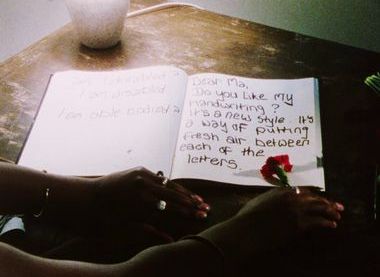 I am able bodied 2
Dear Ma,
Do you Like My
Handwriting ?
it's a new style. it's
a way of putting
Fresh air between
each of the
letters.